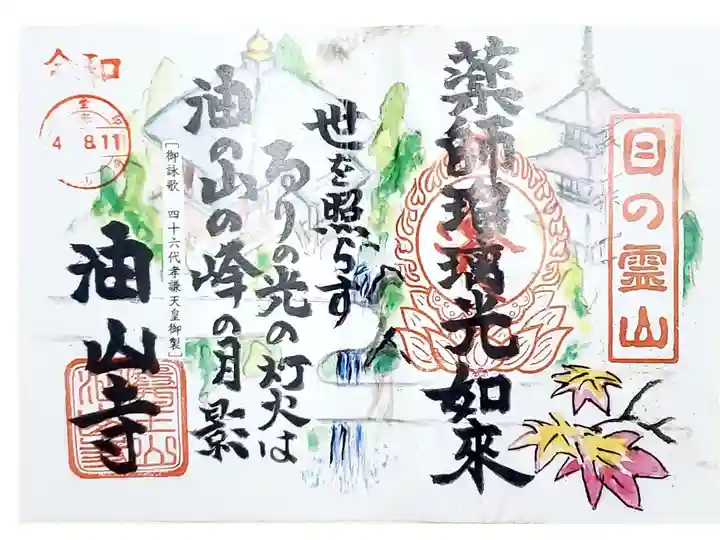 目の霊山
薬師瑠璃光如來
世を照らす
るりの光の灯火は
油の山の峰の月影
［御詠歌 四十六代孝謙天皇御製］
油山寺
令和
4 8.11